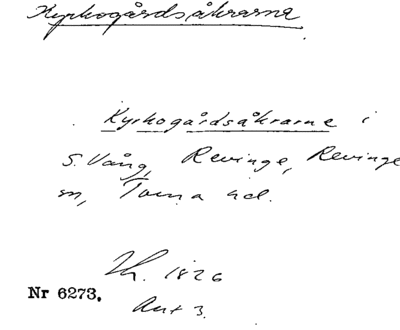 Kyrkogårdsåkrarna
Kyrkogårdsåkrarne i
S. Vång, Revinge, Revinge
sn, Torna hd.
Lh. 1826
Nr 6273.
Akt 3.